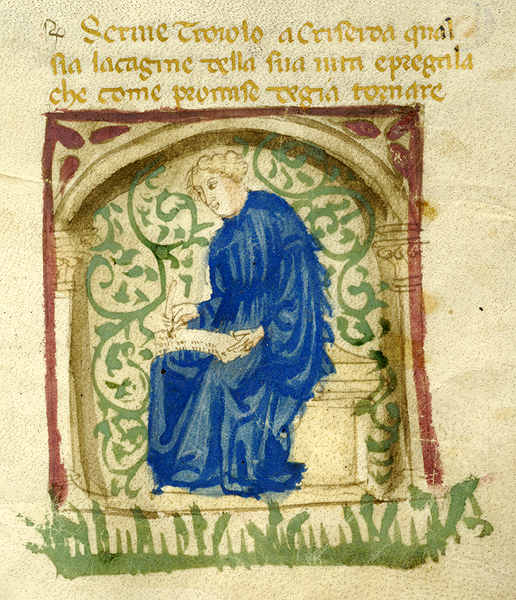 Scriue Troiolo a Criseida qual
sia lacagine della sua uita epregala
che come promise degia tornare